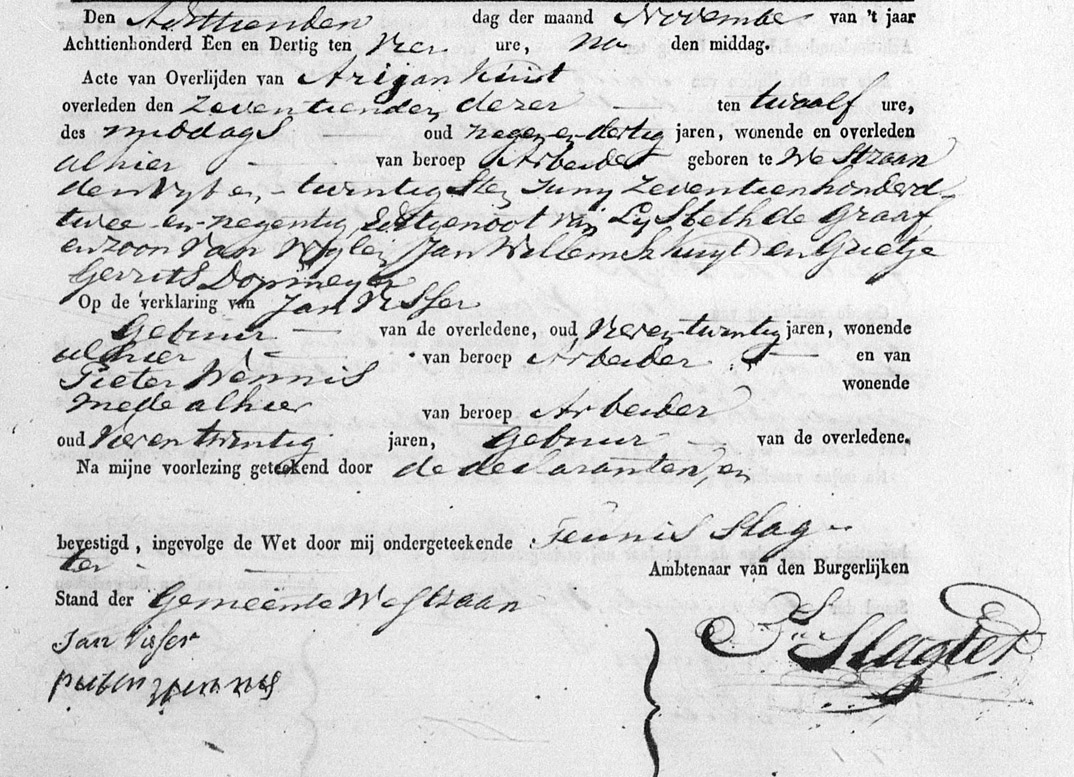 Den Achttienden dag der maand November van 't jaar
Achttienhonderd Een en Dertig ten Vier ure, na den middag.
Acte van Overlijden van Arijan Kuijt
overleden den Zeventienden dezer ten twaalf ure,
des middags oud negen en dertig jaren, wonende en overleden
alhier van beroep Arbeider geboren te WestZaan
den Vijf en twintigsten Junij Zeventienhonderd
twee en negentig Echtgenoot van Lijsbeth de Graaf,
en zoon van Wijlen Jan Willemsz Kuijt en Grietje
Gerrits
Op de verklaring van Jan Visser
Gebuur van de overledene, oud Vier en twintig jaren, wonende
alhier van beroep Arbeider en van
Pieter Wennis wonende
mede alhier van beroep Arbeider
oud Vier en twintig jaren, Gebuur van de overledene.
Na mijne voorlezing geteekend door de declaranten, en
bevestigd, ingevolge de Wet door mij ondergeteekende Teunis Slag-
ter
Ambtenaar van den Burgerlijken
Stand der Gemeente Westzaan
Jan Visser
Slagter